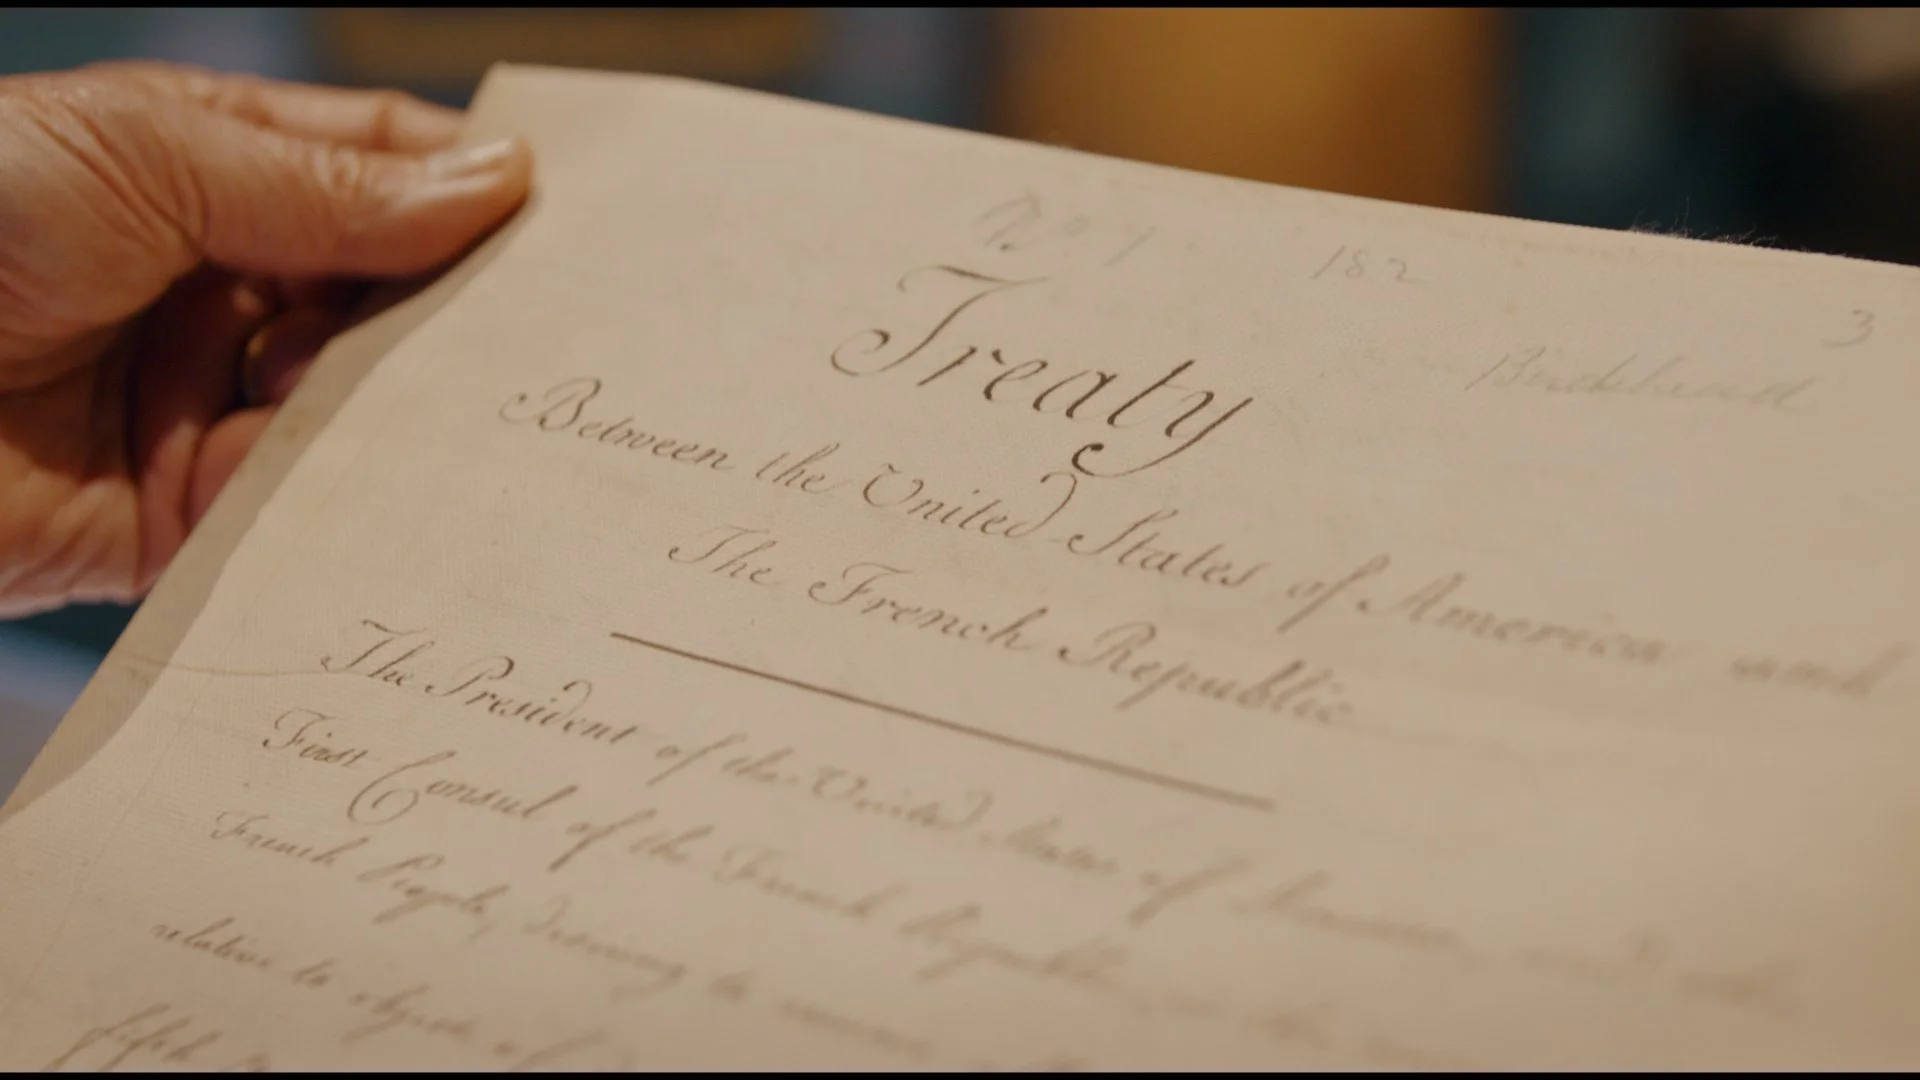 No. 1 182
3
Treaty
Between the United States of America and
The French Republic
The President of the United States of America and
First Consul of the French Republic in the
French People, desiring to
relative to objects of
fifth